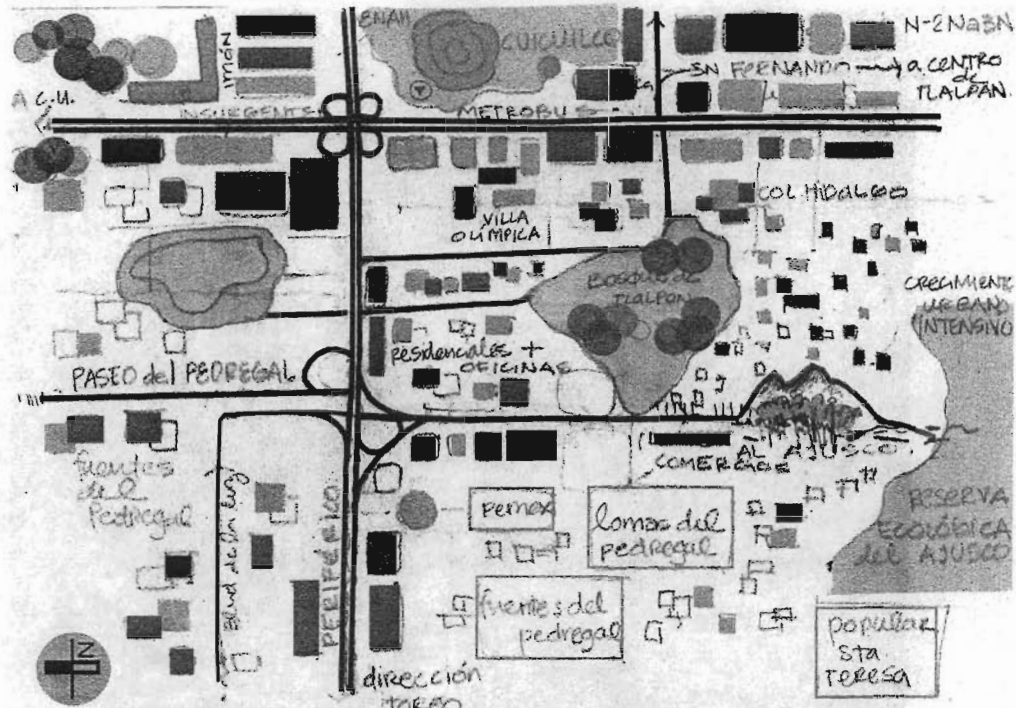 ENAH
CUICUILCO
N-2Na3N
imán
SN FERNANDO → a CENTRO
de
TLALPAN
A C.U.
INSURGENTES
METROBUS
COL HIDALGO
VILLA
OLÍMPICA
BOSQUE DE
TLALPAN
CRECIMIENTO
URBANO
INTENSIVO
residenciales +
OFICINAS
PASEO del PEDREGAL
COMERCIOS
AL AJUSCO
fuentes
del
Pedregal
PERIFÉRICO
pemex
lomas del
pedregal
RESERVA
ECOLÓGICA
del AJUSCO
fuentes del
pedregal
popular
Sta
TERESA
N
dirección
TOREO